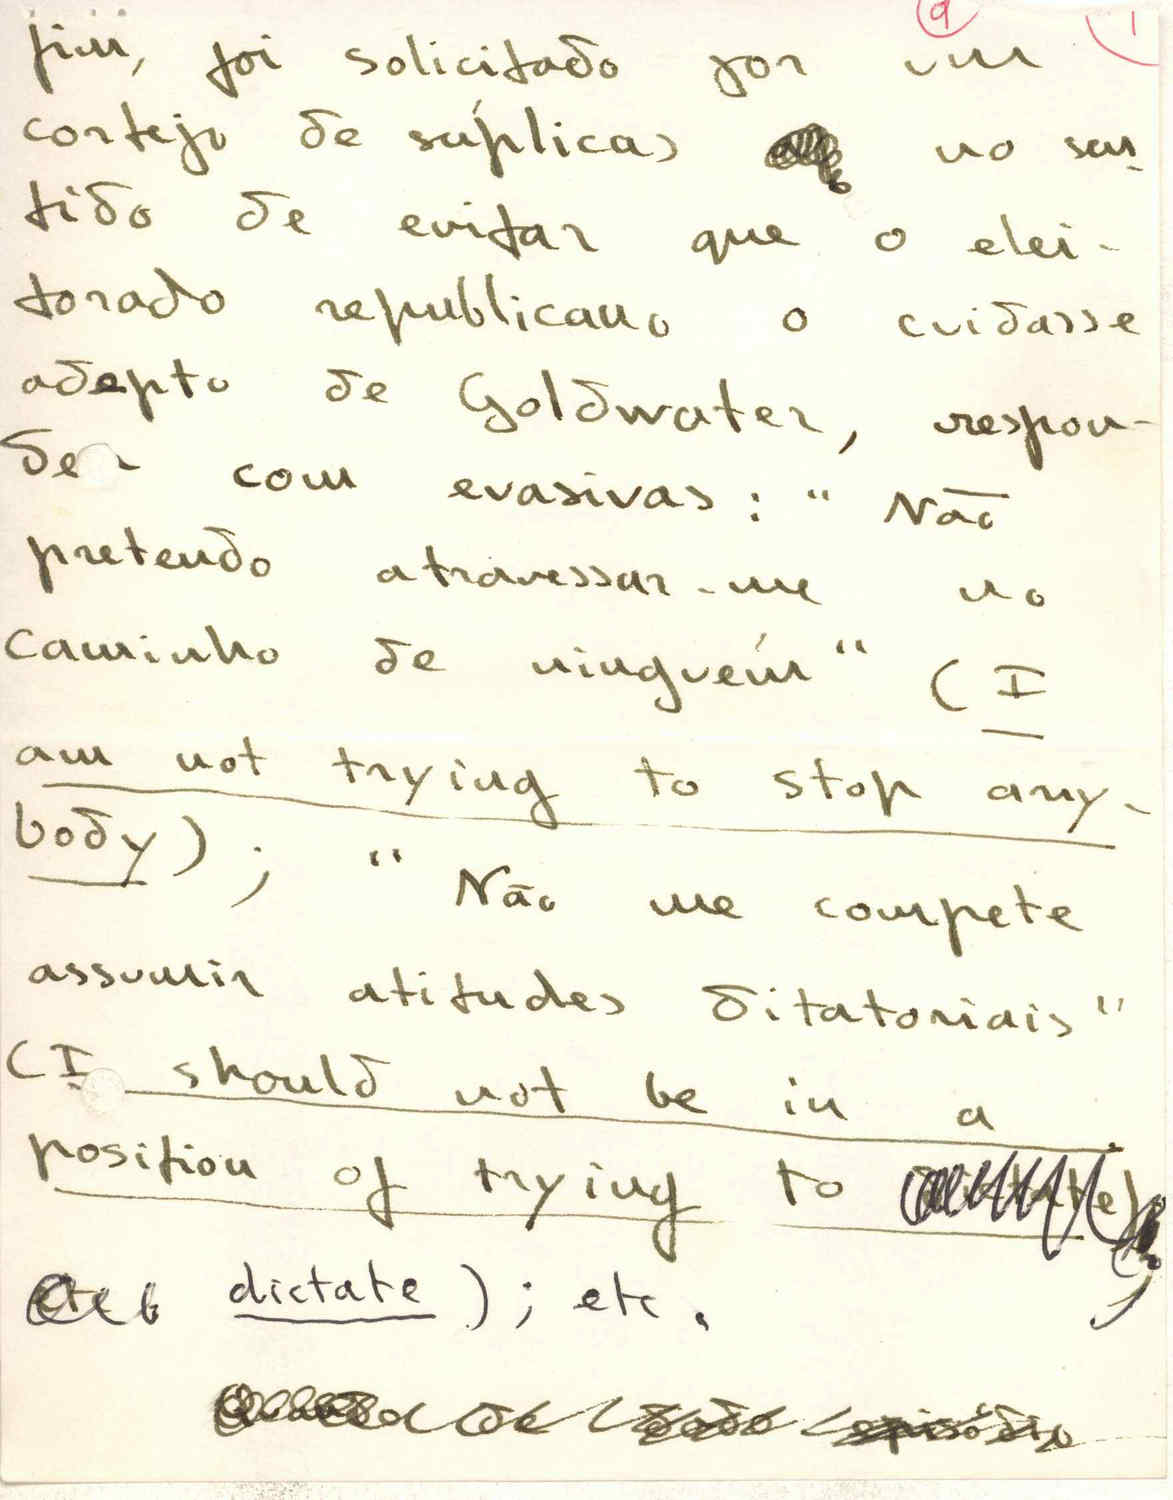 9 1
fim, foi solicitado por um
cortejo de súplicas no sen-
tido de evitar que o elei-
torado republicano o cuidasse
adepto de Goldwater, respon-
der com evasivas: "Não
pretendo atravessar-me no
caminho de ninguém" (I
am not trying to stop any-
body); "Não me compete
assumir atitudes ditatoriais"
(I should not be in a
position of trying to
dictate); etc.